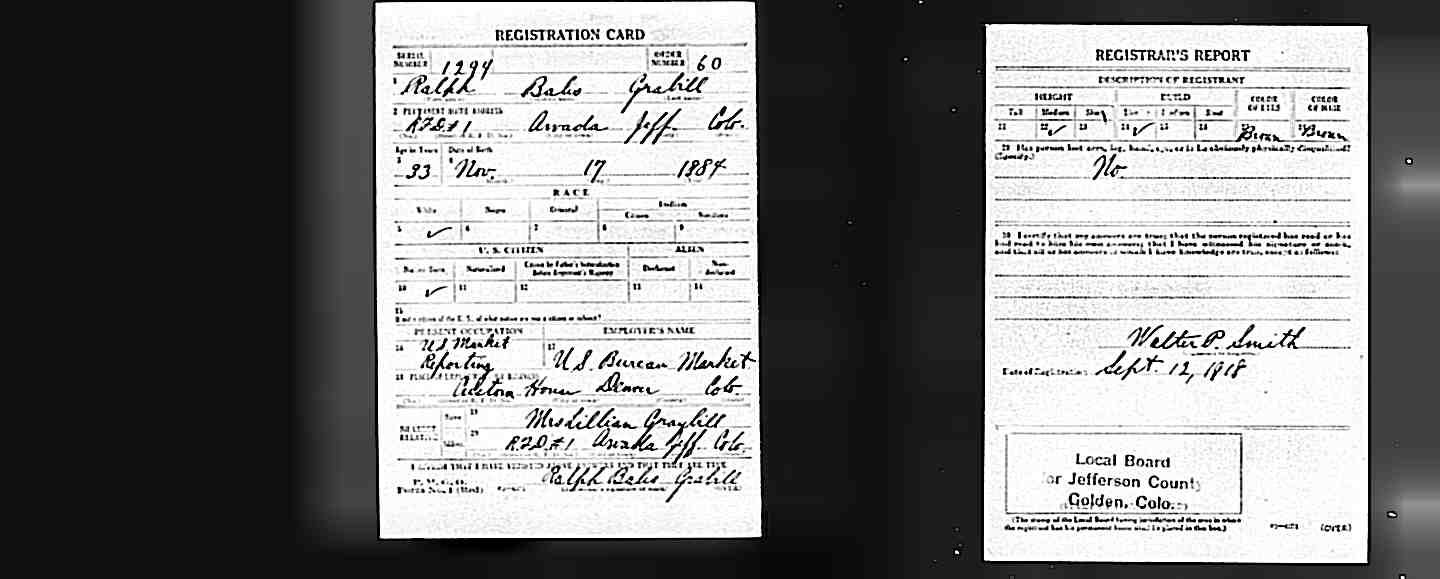 REGISTRATION CARD
SERIAL NUMBER 1294 ORDER NUMBER 60
1 Ralph Babs Grabill
2 PERMANENT HOME ADDRESS
R.F.D. #1 Arvada Jeff. Colo.
Age in Years Date of Birth
3 33 4 Nov. 17 1884
RACE
White Negro Oriental Indian
Citizen
5 ✓ 6 7 8 9
U. S. CITIZEN ALIEN
Native Born Naturalized Citizen by Father's Naturalization Before Registrant's Majority Declarant Non-declarant
10 ✓ 11 12 13 14
15
PRESENT OCCUPATION EMPLOYER'S NAME
16 U.S. Market Reporting 17 U.S. Bureau Market
18
Custom House Denver Colo.
NEAREST RELATIVE
Name 19 Mrs Lillian Graybill
20 R.F.D. #1 Arvada Jeff. Colo.
I AFFIRM THAT I HAVE VERIFIED ABOVE ANSWERS AND THAT THEY ARE TRUE
P. M. G. O.
Form No. 1 (Red) Ralph Babs Grabill (OVER)
REGISTRAR'S REPORT
DESCRIPTION OF REGISTRANT
HEIGHT BUILD COLOR OF EYES COLOR OF HAIR
Tall Medium Short Slender Medium Stout
21 22 ✓ 23 24 ✓ 25 26 27 Brown 28 Brown
29 Has person lost arm, leg, hand, eye, or is he obviously physically disqualified?
(Specify.) No.
30 I certify that my answers are true; that the person registered has read or has
had read to him his own answers; that I have witnessed his signature or mark,
and that all of his answers of which I have knowledge are true, except as follows:
Walter P. Smith
Date of Registration Sept. 12, 1918
Local Board
for Jefferson County
Golden, Colo.
(The stamp of the Local Board having jurisdiction of the area in which
the registrant has his permanent home shall be placed in this box.)
(OVER)